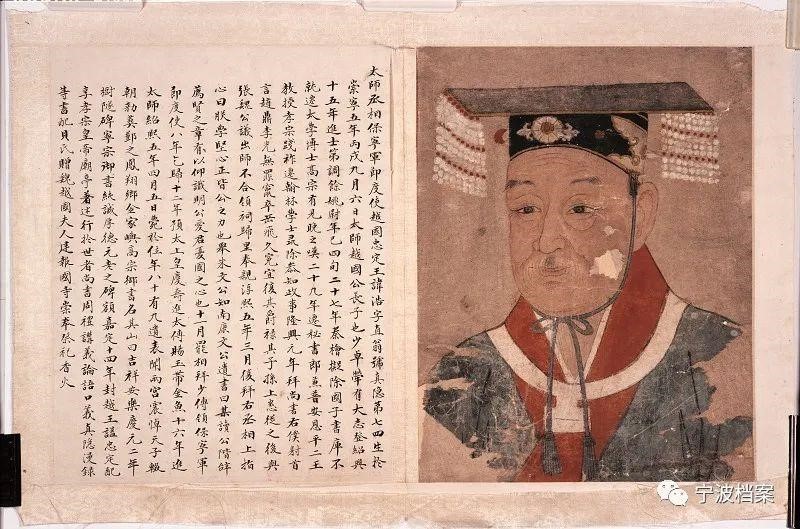 太師丞相保寧軍節度使越國忠定王諱浩字直翁號真隱第七四生於
崇寧五年丙戌九月六日太師越國公長子也少卓犖有大志登紹興
十五年進士第調餘姚尉年已四旬二十七年秦檜擬除國子書庫不
就遷太學博士高宗有見晚之嘆二十九年遷秘書郎兼普安恩平二王
教授孝宗踐祚遷翰林學士尋除參知政事隆興元年拜尚書右僕射首
言趙鼎李光無罪竄卒岳飛久冤宜復其爵祿其子孫上悉從之後與
張魏公議出師不合領祠歸里奉親淳熙五年三月復拜右丞相上指
心曰朕學堅心正皆公之力也舉朱文公知南康文公遺書曰某讀公
薦賢之章有以仰識明公愛君憂國之心也十一月罷相拜少傅領保寧軍
節度使八年乞歸十二年預太上皇慶壽進太傅賜玉帶金魚十六年進
太師紹熙五年四月五日薨於位年八十有九遺表聞兩宮震悼天子輟
朝勅葬鄞之鳳翔鄉金家嶴高宗御書名其山曰吉祥安樂慶元二年
樹隧碑寧宗御書純誠厚德元老之碑額嘉定十四年封越王謚忠定配
享孝宗皇帝廟亭著述行於世者尚書周禮講義論語口義真隱漫錄
等書配貝氏贈魏越國夫人建報國寺崇奉祭祀香火
宁波档案